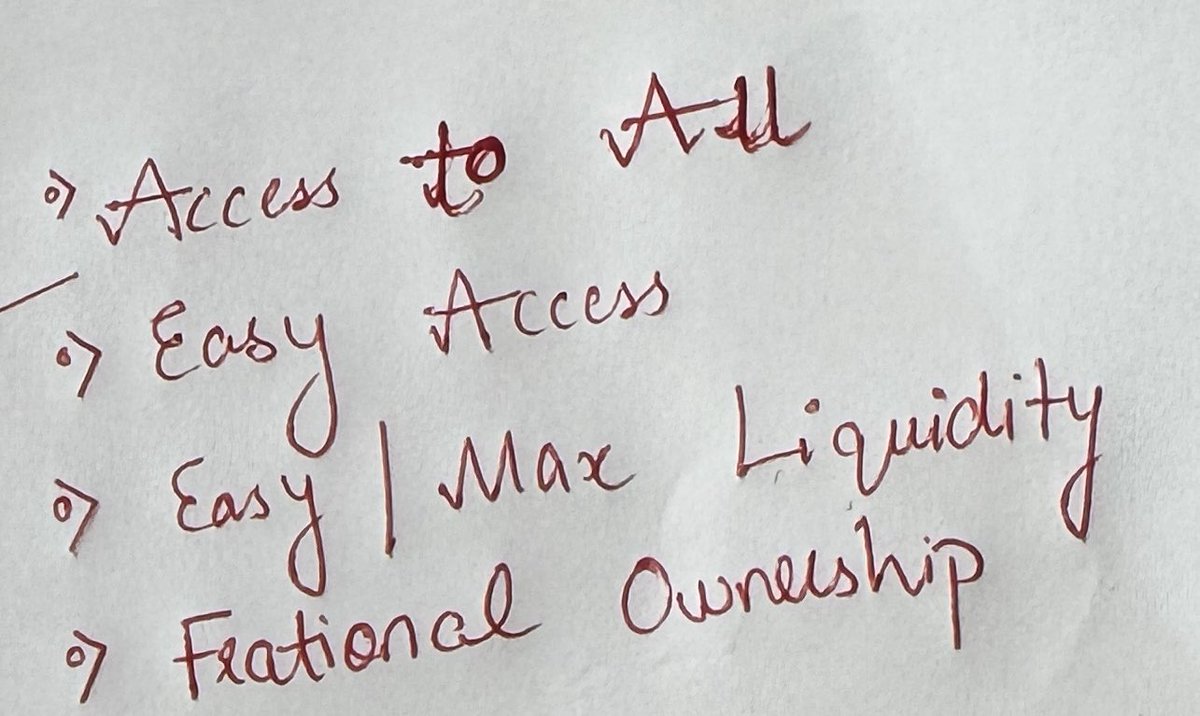 °> Access to All
°> Easy Access
°> Easy | Max Liquidity
°> Frational Ownership